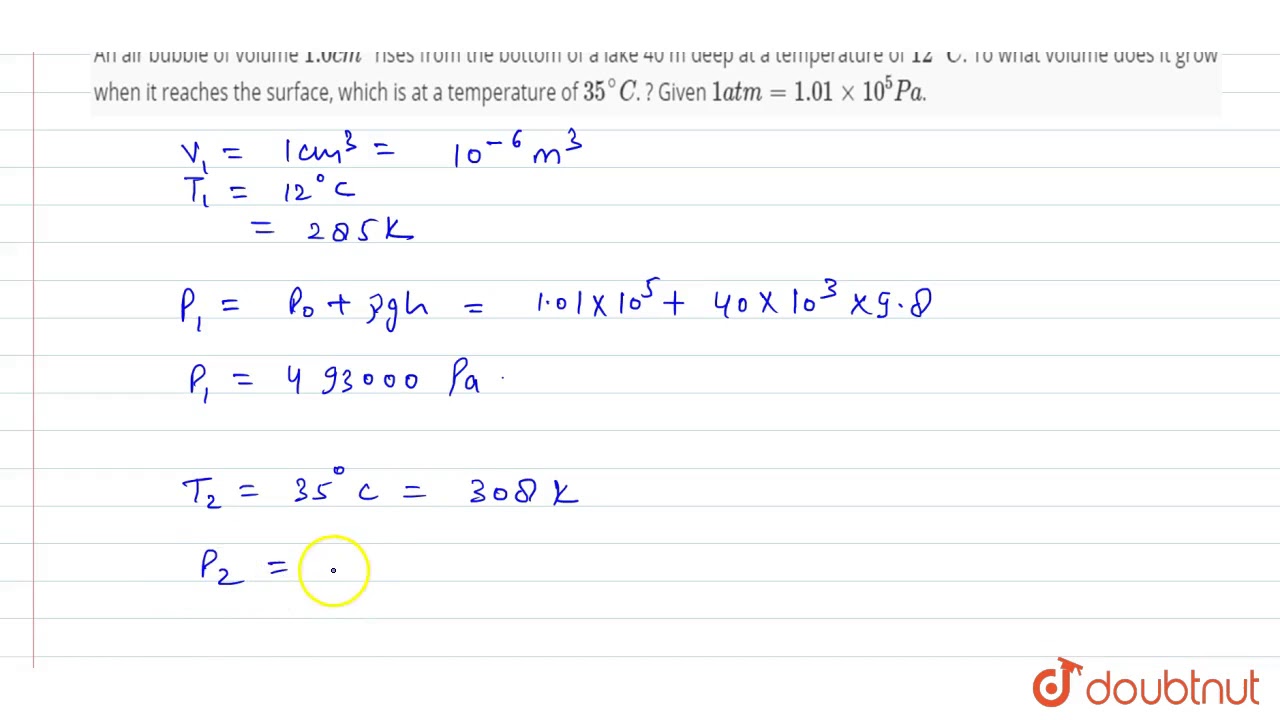 An air bubble of volume 1.0cm³ rises from the bottom of a lake 40 m deep at a temperature of 12° C. To what volume does it grow
when it reaches the surface, which is at a temperature of 35°C. ? Given 1atm = 1.01 × 10⁵Pa.
V₁ = 1cm³ = 10⁻⁶ m³
T₁ = 12°C
= 285K
P₁ = P₀ + ρgh = 1.01×10⁵ + 40×10³ ×9.8
P₁ = 493000 Pa
T₂ = 35°C = 308 K
P₂ =
doubtnut